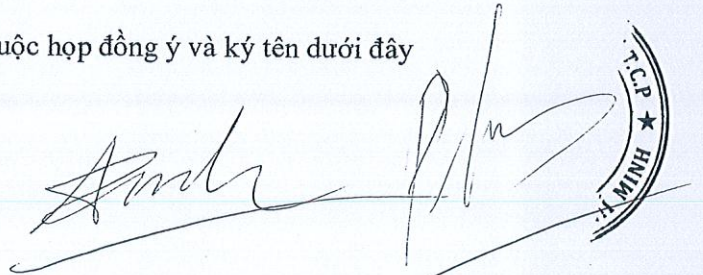 uộc họp đồng ý và ký tên dưới đây
T.C.P ★
H MINH